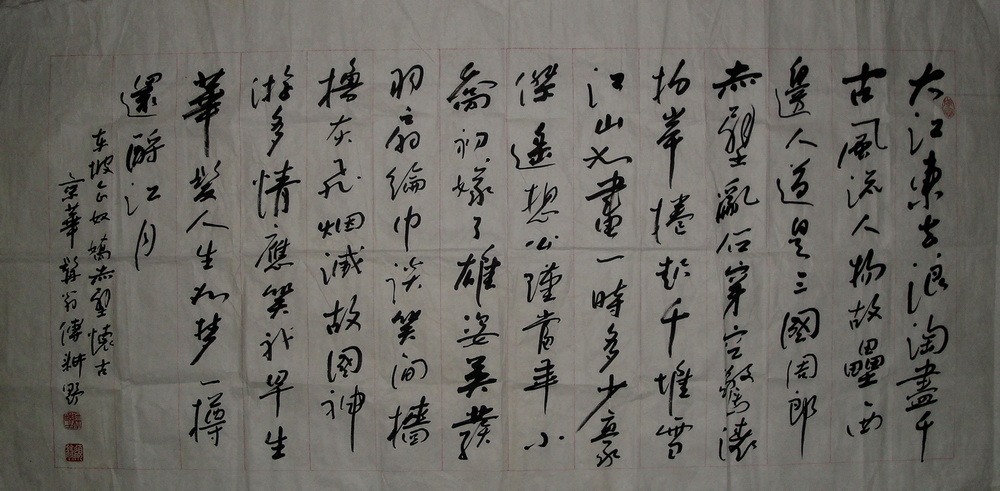 大江東去浪淘盡千
古風流人物故壘西
邊人道是三國周郎
赤壁亂石穿空驚濤
拍岸捲起千堆雪
江山如畫一時多少豪
傑遙想公瑾當年小
喬初嫁了雄姿英發
羽扇綸巾談笑間檣
櫓灰飛烟滅故國神
游多情應笑我早生
華髮人生如梦一樽
還酹江月
东坡念奴嬌赤壁懷古
京華聱翁傅耕野